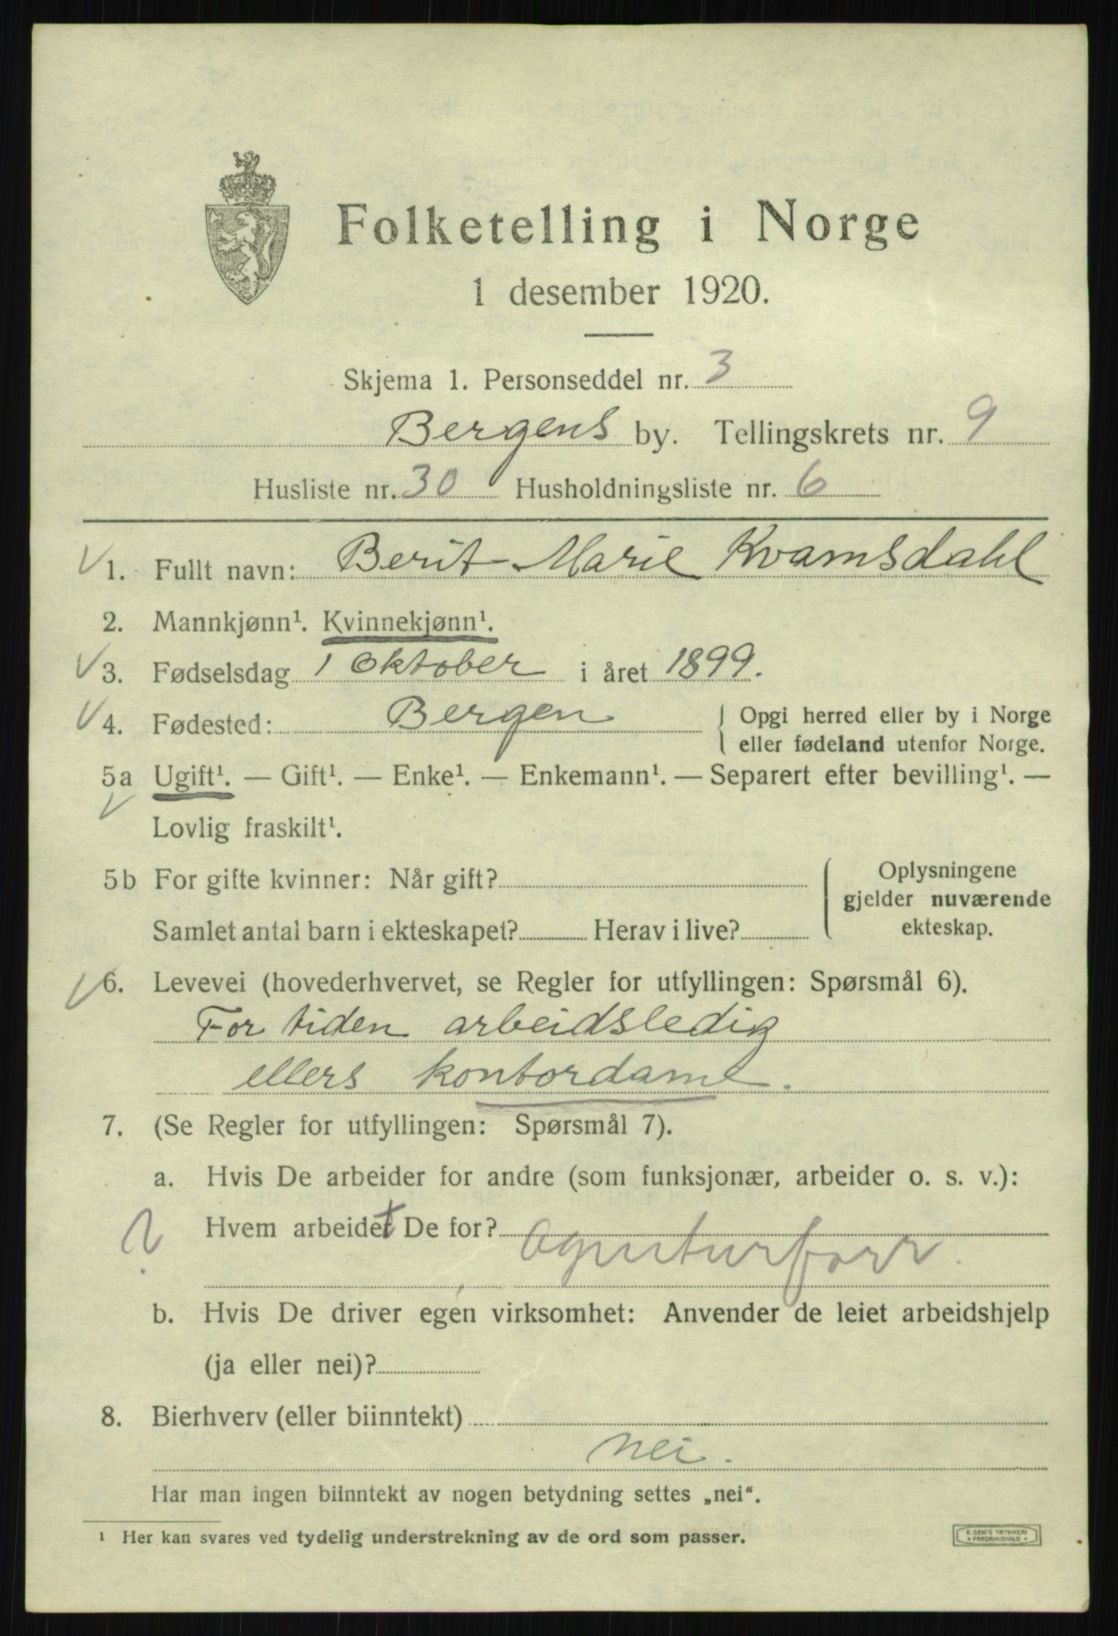 Folketelling i Norge
1 desember 1920.
Skjema 1. Personseddel nr. 3
Bergens by. Tellingskrets nr. 9
Husliste nr. 30 Husholdningsliste nr. 6
1. Fullt navn: Berit Marie Kvamsdahl
2. Mannkjønn¹. Kvinnekjønn¹.
3. Fødselsdag 1 Oktober i året 1899.
4. Fødested: Bergen
Opgi herred eller by i Norge
eller fødeland utenfor Norge.
5a Ugift¹. — Gift¹. — Enke¹. — Enkemann¹. — Separert efter bevilling¹. —
Lovlig fraskilt¹.
5b For gifte kvinner: Når gift?
Samlet antal barn i ekteskapet? Herav i live?
Oplysningene
gjelder nuværende
ekteskap.
6. Levevei (hovederhvervet, se Regler for utfyllingen: Spørsmål 6).
For tiden arbeidsledig
ellers kontordame.
7. (Se Regler for utfyllingen: Spørsmål 7).
a. Hvis De arbeider for andre (som funksjonær, arbeider o. s. v.):
? Hvem arbeidet De for? Agenturforr.
b. Hvis De driver egen virksomhet: Anvender de leiet arbeidshjelp
(ja eller nei)?
8. Bierhverv (eller biinntekt)
nei.
Har man ingen biinntekt av nogen betydning settes „nei“.
¹ Her kan svares ved tydelig understrekning av de ord som passer.
E. SEM'S TRYKKERI
FREDRIKSHALD